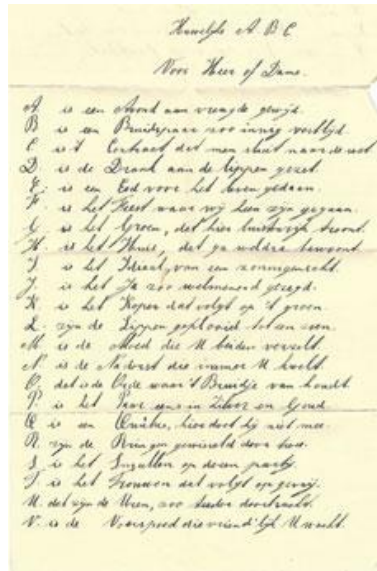 Huwelijks A. B C
Voor Heer of Dame.
A. is een Avond aan vreugde gewijd.
B is een Bruidspaar zoo innig verblijd.
C is 't Contract dat men sluit naar de wet
D. is de Drank aan de lippen gezet.
E. is een Eed voor het leven gedaan.
F. is het Feest waar wij heen zijn gegaan.
G. is het Groen, dat hier troont.
H. is het Huis, dat ge weldra bewoont.
I is het Ideaal, van een
J. is het Ja zoo welmeenend gezegd.
K is het Kopen dat volgt op 't groen.
L. zijn de Lippen geplooid tot een zoen.
M is de Moed die U beiden verzelt.
N is de Nadorst die immer U kwelt.
O. dat is de Orde waar 't Bruidje van houdt.
P is het Paar eens in Zilver en Goud.
Q is een hier doet hij niet mee.
R. zijn de Ringen gewisseld door twee.
S is het op dezen party.
T is het Trouwen dat volgt op gevrij.
U. dat zijn de Uren, zoo teeder doorbracht.
V. is de Voorspoed die vriend'lijk U wacht.